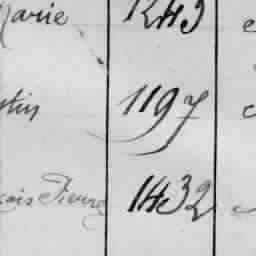 Marie 1243
stin 1197
çois Pierre 1432